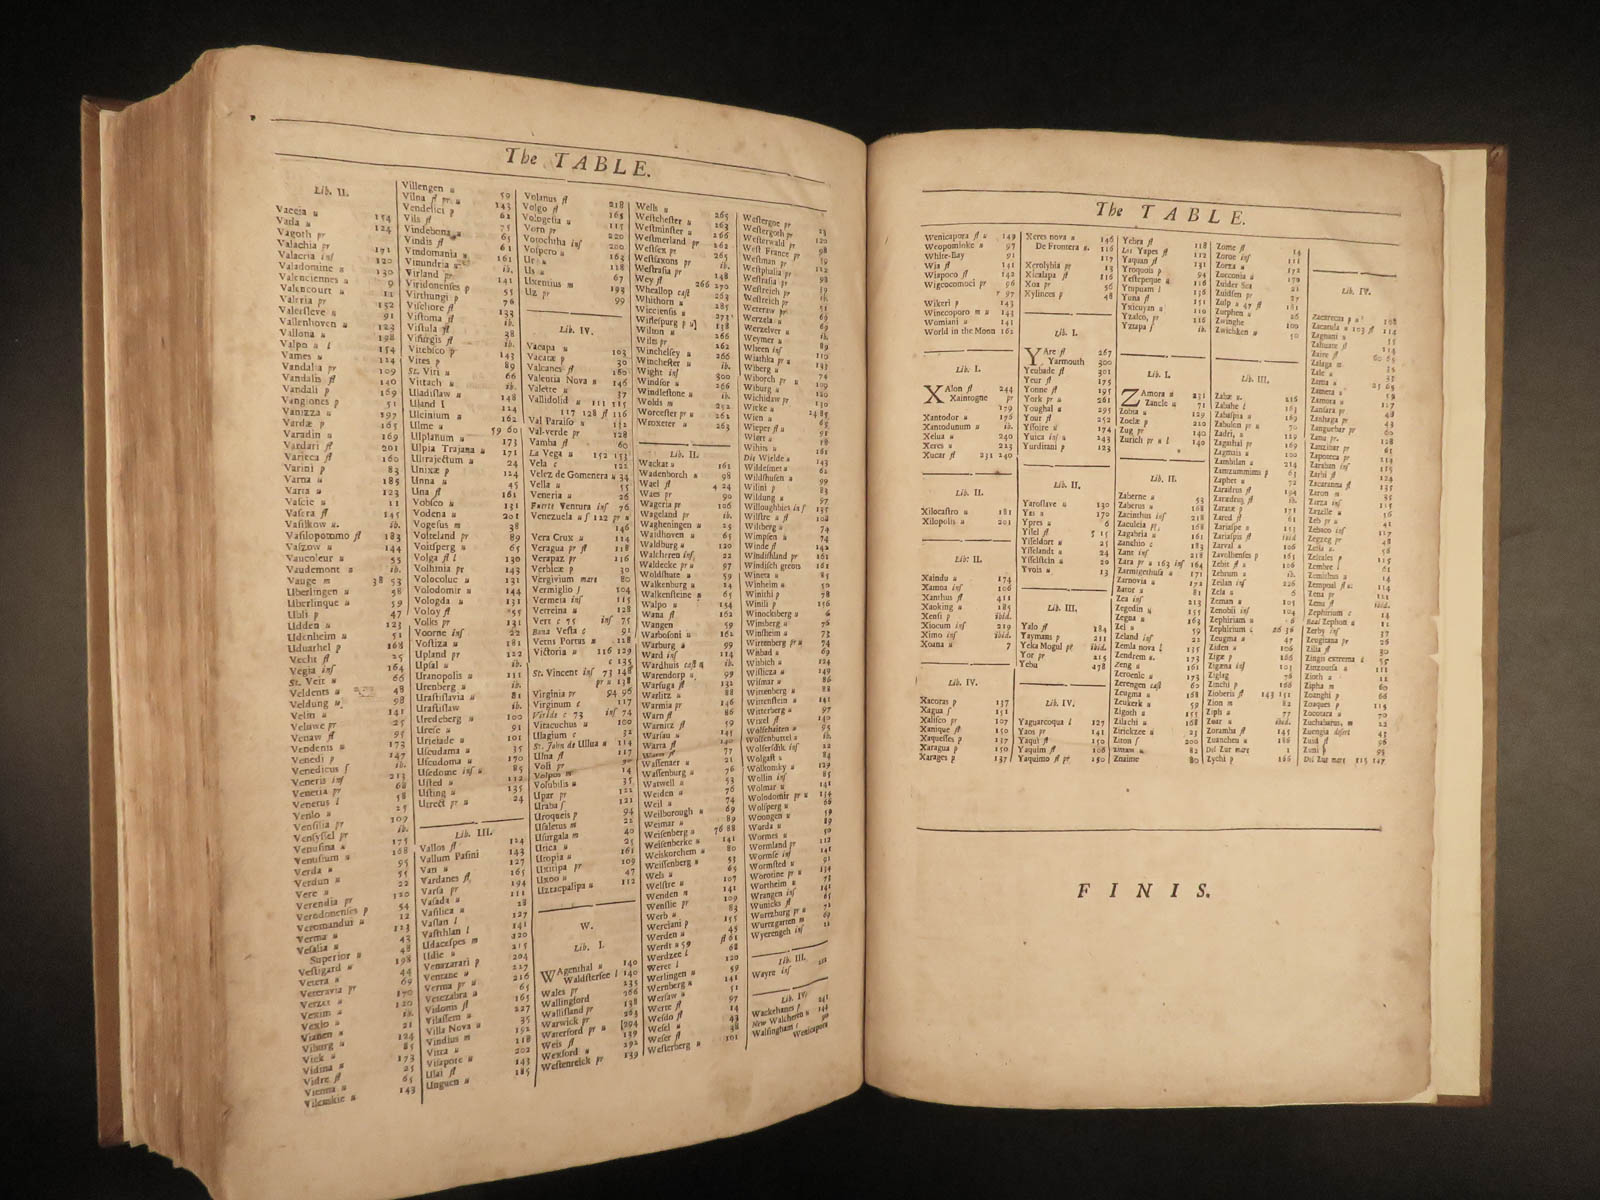 The TABLE.
Lib. II.
Vaccia u 154
Vada u 124
Vagoth pr
Valachia pr 171
Valaeria inf 120
Valadomine u 130
Valenciennes u 9
Valencourt u 11
Valeria pr 152
Valersleve u 91
Vallenhoven u 123
Vallona u 198
Valpo u l 154
Vames u 124
Vandalia pr 109
Vandalis fl 140
Vandali p 169
Vangiones p 51
Vanizza u 197
Vardæ p 165
Varadin u 169
Vardari fl 201
Varieca fl 160
Varini p 83
Varna u 185
Varta u 123
Vascie u 11
Vasera fl 145
Vasilkow u. ib.
Vasilopotomo fl 183
Vaszow u 144
Vaucoleur u 55
Vaudemont u ib.
Vauge m 38 53
Uberlingen u 58
Uberlinque u 59
Ubii p 47
Udden u 123
Udenheim u 51
Uduarhel p 168
Vecht fl 25
Vegia inf 164
St. Veit u 66
Veldents u 48
Veldung u. 98
Velin u 141
Veluwe pr 25
Venaw fl 95
Vendenis u 173
Venedi p 147
Venedicus f ib.
Veneris inf 213
Venetia pr 68
Venetus l 58
Venlo u 25
Vensilia pr 109
Vensyssel pr ib.
Venusina u 175
Venusium u 168
Verda u 95
Verdun u 55
Vere u 22
Verendia pr 120
Verodonenses p 54
Veromandui u 12
Verma u 113
Vesalia u 43
Superior u 48
Vestigard u 198
Vetera u 44
Veteravia pr 69
Vetzet u 170
Vexin u 120
Vexio u ib.
Vianen u 21
Viburg u 124
Vick u 85
Vidina u 173
Vidre fl 25
Vienna u 65
Vilemkie u 143
Villengen u 59
Vilna fl pr u 143
Vendelici p 61
Vils fl 75
Vindebona u 65
Vindis fl 61
Vindomania u 161
Vinundria u ib.
Virland pr 141
Viridonenses p 55
Virthungi p 76
Vischore fl 133
Vistoma fl ib.
Vistula fl 38
Visurgis fl ib.
Vitebsco p 143
Vites p 89
St. Viti u 66
Vittach u 148
Uladislaw u 124
Uland l 162
Ulcinium u
Ulme u 59 60
Ulpianum u 173
Ulpia Trajana u 171
Ultrajectum u 24
Unixæ p 124
Unna u 45
Una fl 161
Vobsco u 131
Vodena u 201
Vogesus m 38
Volteland pr 89
Voitsperg u 65
Volga fl l 130
Volhinia pr 143
Volocoluc u 131
Volodomir u 144
Vologda u 131
Voloy fl 55
Volks pr 131
Voorne inf 22
Vostiza u 181
Upland pr 122
Upsal u ib.
Uranopolis u 111
Urenberg u ib.
Urastislavia u 81
Urastislaw ib.
Uredeberg u 100
Urese u 91
Urieiade u 101
Uscudama u 35
Uscudoma u 170
Usedome inf u 85
Usted u 112
Usting u 135
Utrect pr u 24
Lib. III.
Vallos fl 124
Vallum Pasini 143
Van u 127
Vardanes fl 165
Varsa pr 194
Vasada u 111
Vasilica u 28
Vastan l 127
Vasthlan l 141
Udacespes m 220
Udie u 215
Venazarari p 204
Ventane u 227
Verma pr u 216
Vesezabra u 65
Vidonis fl 165
Vilassem u 227
Villa Nova u 35
Vindius m 192
Vitra u 118
Visapore u 202
Ulai fl 143
Unguen u 185
Volanus fl 218
Volgo fl 165
Vologesia u 115
Vorn pr 220
Vorochtha inf 200
Vospero u 163
Ur u 118
Us u 67
Uxentius m 193
Uz pr 99
Lib. IV.
Vacapa u 103
Vacatæ p 30
Valcanes fl 180
Valentia Nova u 146
Valette u 37
Vallidolid u 111 115
117 128 fl 116
Val Paraiso u 132
Val-verde pr 128
Vamba fl 60
La Vega u 152 153
Vela c 122
Velez de Gomenera u 34
Vella u 55
Veneria u 26
Fuerte Ventura inf 76
Venezuela u f 122 pr u
146
Vera Crux u 114
Veragua pr fl 118
Verapaz pr 116
Verbicæ p 30
Vergivium mare 80
Vermiglio f 104
Vermeia inf 115
Verreina u 128
Vert c 75 inf 75
Buna Vesta c 91
Vetus Portus u 128
Victoria u 116 129
c 135
St. Vincent inf 73 148
pr u 138
Virginia pr 94 96
Virginum c 117
Viride c 73 inf 74
Vitacuchus u 100
Ulagium c 32
St. John de Ullua u 114
Ulna fl 117
Volt pr 14
Volpos m 35
Volubilis u
Upar pr 122
Uraba f 121
Uroqueis p 94
Usaletus m 21
Usurgala m 40
Utica u 25
Utopia u 161
Uxitipa pr 109
Uxoo u 47
Uztacpalipa u 112
W.
Lib. I.
WAgenthal u 140
Waldstersee l 140
Wales pr 235
Wallingford 266
Wallisland pr 138
Warwick pr 263
Waterford pr u [294
Weis fl 139
Wexford u 292
Westenreick pr 139
Wells u 265
Westchester u 263
Westminster u 266
Westmerland pr 262
Westsex pr 265
Westsaxons pr ib.
Westrasia pr 148
Wey fl 266 270
Wheallop cast 263
Whithorn u 285
Wiccienses u 273
Wiflespurg p u] 138
Wilton u 266
Wilts pr 262
Winchelsey u 266
Winchester u ib.
Wight inf 300
Windsor u 266
Windlestone u ib.
Wolds m 252
Worcester pr u 262
Wroxeter u 263
Lib. II.
Wackat u 161
Wadenborch u 98
Wael fl 4 24
Waes pr 90
Wageria pr 106
Wageland pr ib.
Wagheningen u 25
Waidhoven u 65
Waldburg u 120
Walcheren inf 22
Waldecke pr u 97
Woldshute u 59
Walkenburg u 14
Walkensteine u 65
Walpo u 154
Wana fl 162
Wangen 59
Warbosoni u 162
Warburg u 99
Ward inf 114
Wardhuis cast u ib.
Warendorp u 99
Warsuga fl 132
Warlitz u 88
Warmia pr 146
Warn fl 86
Warnitz fl 59
Warsau u 145
Warta fl 140
Wassenaer u 21
Wassenburg u 76
Watwell u 53
Weiden u 76
Weil u 74
Weilborough u 69
Weimar u 89
Weisenberg u 76 88
Weisenberke u 141
Weiskorchem u 80
Weissenberg u 53
Wels u 65
Welstre u 107
Wenden u 141
Wensie pr 109
Werb u 83
Werciani p 155
Werden u 45
Werdt u 59 fl 61
Werdzee l 68
Weret l 120
Werlingen u 59
Wernberg u 141
Wersaw u 51
Werte fl 97
Wesdo fl 14
Wesel u 43
Weser fl 38
Westerberg u 101
Westergoe pr 23
Westergoth pr 120
Westerwald pr 98
West France pr
Westman pr 112
Westphalia pr 93
Westrasia pr 19
Westreich pr ib.
Westreich pr 51
Weteraw pr 69
Wetzela u ib.
Wetzelver u 69
Weymer u ib.
Wheen inf 89
Wiathka pr u 110
Wiberg u 133
Wiborch pr u 74
Wiburg u 109
Wichidaw pr 120
Wicke u 130
Wien u 24 85
Wieper fl u 65
Wiert u 91
Wihits u 18
Die Wielde u 161
Wildesinet u 143
Wildshusen u 62
Wilini p 99
Wildung u 83
Willoughbies inf 97
Wilstre u fl 135
Wilsberg u 108
Wimpsen u 74
Winde fl 74
Windishland pr 142
Windisch greots 161
Wineta u 161
Winheim u 85
Winithi p 50
Winili p 78
Winocksberg u 156
Wimberg u 6
Winsheim u 76
Wirtenberg pr u 73
Wisbad u 74
Wisbich u 69
Wislicza u 124
Wismar u 148
Wittenberg u 86
Wittenstein u 88
Witterberg u 141
Wixel fl 97
Wolfehaiten u 140
Wolfenbuttel u 95
Wolferfdik inf ib.
Wolgast u 22
Wolkomsky u 84
Wollin inf 129
Wolmar u 85
Wolodomir pr u 141
Wolsperg u 134
Woongen u 66
Worda u 59
Wormes u 89
Wormland pr 50
Wormse inf 112
Wormsted u 141
Worotine pr u 91
Wortheim u 134
Wrangen inf 73
Wunicks fl 141
Wurtzburg pr u 65
Wurtzgarten m 71
Wyerengeh inf 69
11
Lib. III.
Wayre inf 221
Lib. IV.
Wackehanes f 241
New Walcheren u 144
Walsingham f 90
Wenicapora
The TABLE.
Wenicapora fl u 149
Weopominke u 97
White-Bay 91
Wia fl 141
Wiapoco fl 142
Wigcocomoci pr 96
r 97
Wikeri p 143
Winecoporo m u 143
Womiani u 141
World in the Moon 162
Lib. I.
XAlon fl 244
Xaintogne pr
179
Xantodor u 176
Xantodunum u ib.
Xelua u 240
Xeres u 223
Xucar fl 231 240
Lib. II.
Xilocastro u 181
Xilopolis u 201
Lib. II.
Xaindu u 174
Xamoa inf 106
Xanthus fl 411
Xaoking u 185
Xensi p ibid.
Xiocum inf 219
Ximo inf ibid.
Xoana u 7
Lib. IV.
Xacoras p 137
Xagua f 151
Xalisco pr 107
Xanique fl 150
Xaquesses p 137
Xaragua p 150
Xarages p 137
Xeres nova u 146
De Frontera u. 116
117
Xerolybia pr 13
Xicalapa fl 116
Xoa pr 56
Xylinces p 48
Lib. I.
YAre fl 267
Yarmouth 300
Yeubade fl 301
Yeur fl 175
Yonne fl 195
York pr u 261
Youghal u 295
Your fl 252
Yssoire u 174
Yuica inf u 243
Yurdirani p 123
Lib. II.
Yaroslave u 130
Yas u 170
Ypres u 6
Yssel fl 5 15
Ysseldort u 25
Ysselands u 24
Ysselstein u 20
Yvois u 13
Lib. III.
Yalo fl 184
Yaymans p 211
Yeka Mogul pr ibid.
Yor pr 215
Yebu 478
Lib. IV.
Yaguarcoqua l 127
Yaos pr 141
Yaqui fl 150
Yaquim fl 108
Yaquimo fl pr 150
Yebra fl 118
Los Yapes fl 112
Yaquan fl 131
Yroquois p 94
Yestepeque u 116
Ytupuam l 136
Yuna fl 151
Yxicuyan u 110
Yzalco, pr 116
Yztapa f ib.
Lib. I.
ZAmora u 231
Zancle u 71
Zobia u 129
Zoelæ p 210
Zug pr 140
Zurich pr u l 140
Lib. II.
Zaberne u 53
Zaberus u 168
Zacinthus inf 218
Zaculcia p, 168
Zagabria u 161
Zanchio c 183
Zant inf 218
Zara pr u 163 inf 164
Zarmigethusa u 171
Zarnovia u 172
Zator u 81
Zea inf 213
Zegedin u 155
Zegna u 163
Zel u 59
Zeland inf 22
Zemla nova l 135
Zendrem u. 173
Zeng u 161
Zeroenic u 173
Zerengen cast 60
Zeugma u 168
Zeukerk u 59
Zigoth u 155
Zilachi u 168
Ziriekzee u 25
Ziton f 200
Zittaw u 82
Znaime 80
Zome fl 14
Zoroe inf 111
Zorza u 172
Zucconia u 170
Zuider Sea 21
Zuidsen pr 27
Zulp u 47 fl 181
Zurphen u 26
Zwinghe 100
Zwichken u 50
Lib. III.
Zabæ u. 216
Zabahe l 163
Zabaspia u 169
Zabulon pr u 70
Zadri, u 119
Zagathai pr 169
Zagmuis u 100
Zambilan u 214
Zamzummims p 65
Zaphet u 72
Zaradrus fl 194
Zaradrus, fl ib.
Zaratæ p 171
Zared fl 61
Zariaspe u 155
Zariaspis fl ibid
Zarval u 106
Zavolhenses p 165
Zebit fl u 106
Zebrum u ib.
Zeilan inf 226
Zela u 6
Zeman u 105
Zenobii inf 104
Zephiriam u 6
Zephirium c 26 36
Zeugma u 47
Ziden u 106
Zigæ p 166
Zigæna inf 103
Ziglag 76
Zinchi p 166
Zioberis fl 143 151
Zion m 82
Ziph u 77
Zoar u ibid.
Zoramba fl 145
Zuanchen u 186
Del Zur mare 1
Zychi p 166
Lib. IV.
Zacatecas p u 108
Zacatula u 103 fl 114
Zagnani u 55
Zahuate fl 114
Zaire fl 60 65
Zalaga m 35
Zale u 35
Zama u 25 65
Zamera u 25
Zamora u 127
Zanfara pr 48
Zanhaga pr 43
Zanguebar pr 60
Zanu pr. 128
Zanzibar pr 61
Zapoteca pr 114
Zaraban inf 115
Zarhi fl 124
Zacaranna fl 135
Zaron m 35
Zarza inf 115
Zazcile u 16
Zeb pr u 41
Zebuco inf 117
Zegzeg pr 48
Zeila u. 58
Zelcales p 16
Zembre l 61
Zemithus u 14
Zempoal fl u 114
Zena pr 112
Zenu fl ibid.
Zephirium c 14
Real Zephon u 11
Zerby inf 37
Zeugitana pr 26
Zilia fl 30
Zingis extrema c 55
Zinzontsa u 111
Zioth u 11
Zipha m 60
Zoanghi p 66
Zoaques p 115
Zocotara u 70
Zuchabarus, m 22
Zuengia desert 43
Zuid fl 96
Zuni p 93
Del Zur mare 115 147
FINIS.